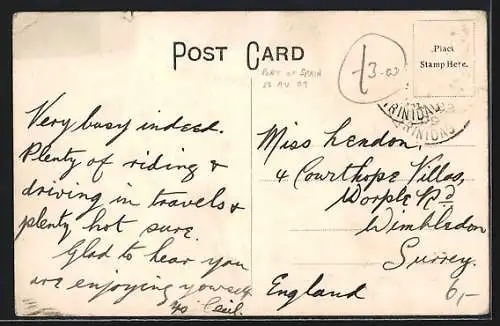 POST CARD
PORT OF SPAIN
23 AU 09
13-00
Place
Stamp Here.
TRINIDAD
TRINIDAD
Very busy indeed.
Plenty of riding &
driving in travels &
plenty hot sure.
Glad to hear you
are enjoying yourself.
Yrs Cecil.
Miss Lendon,
4 Courthope Villas,
Worple Rd
Wimbledon
Surrey.
England
6,-